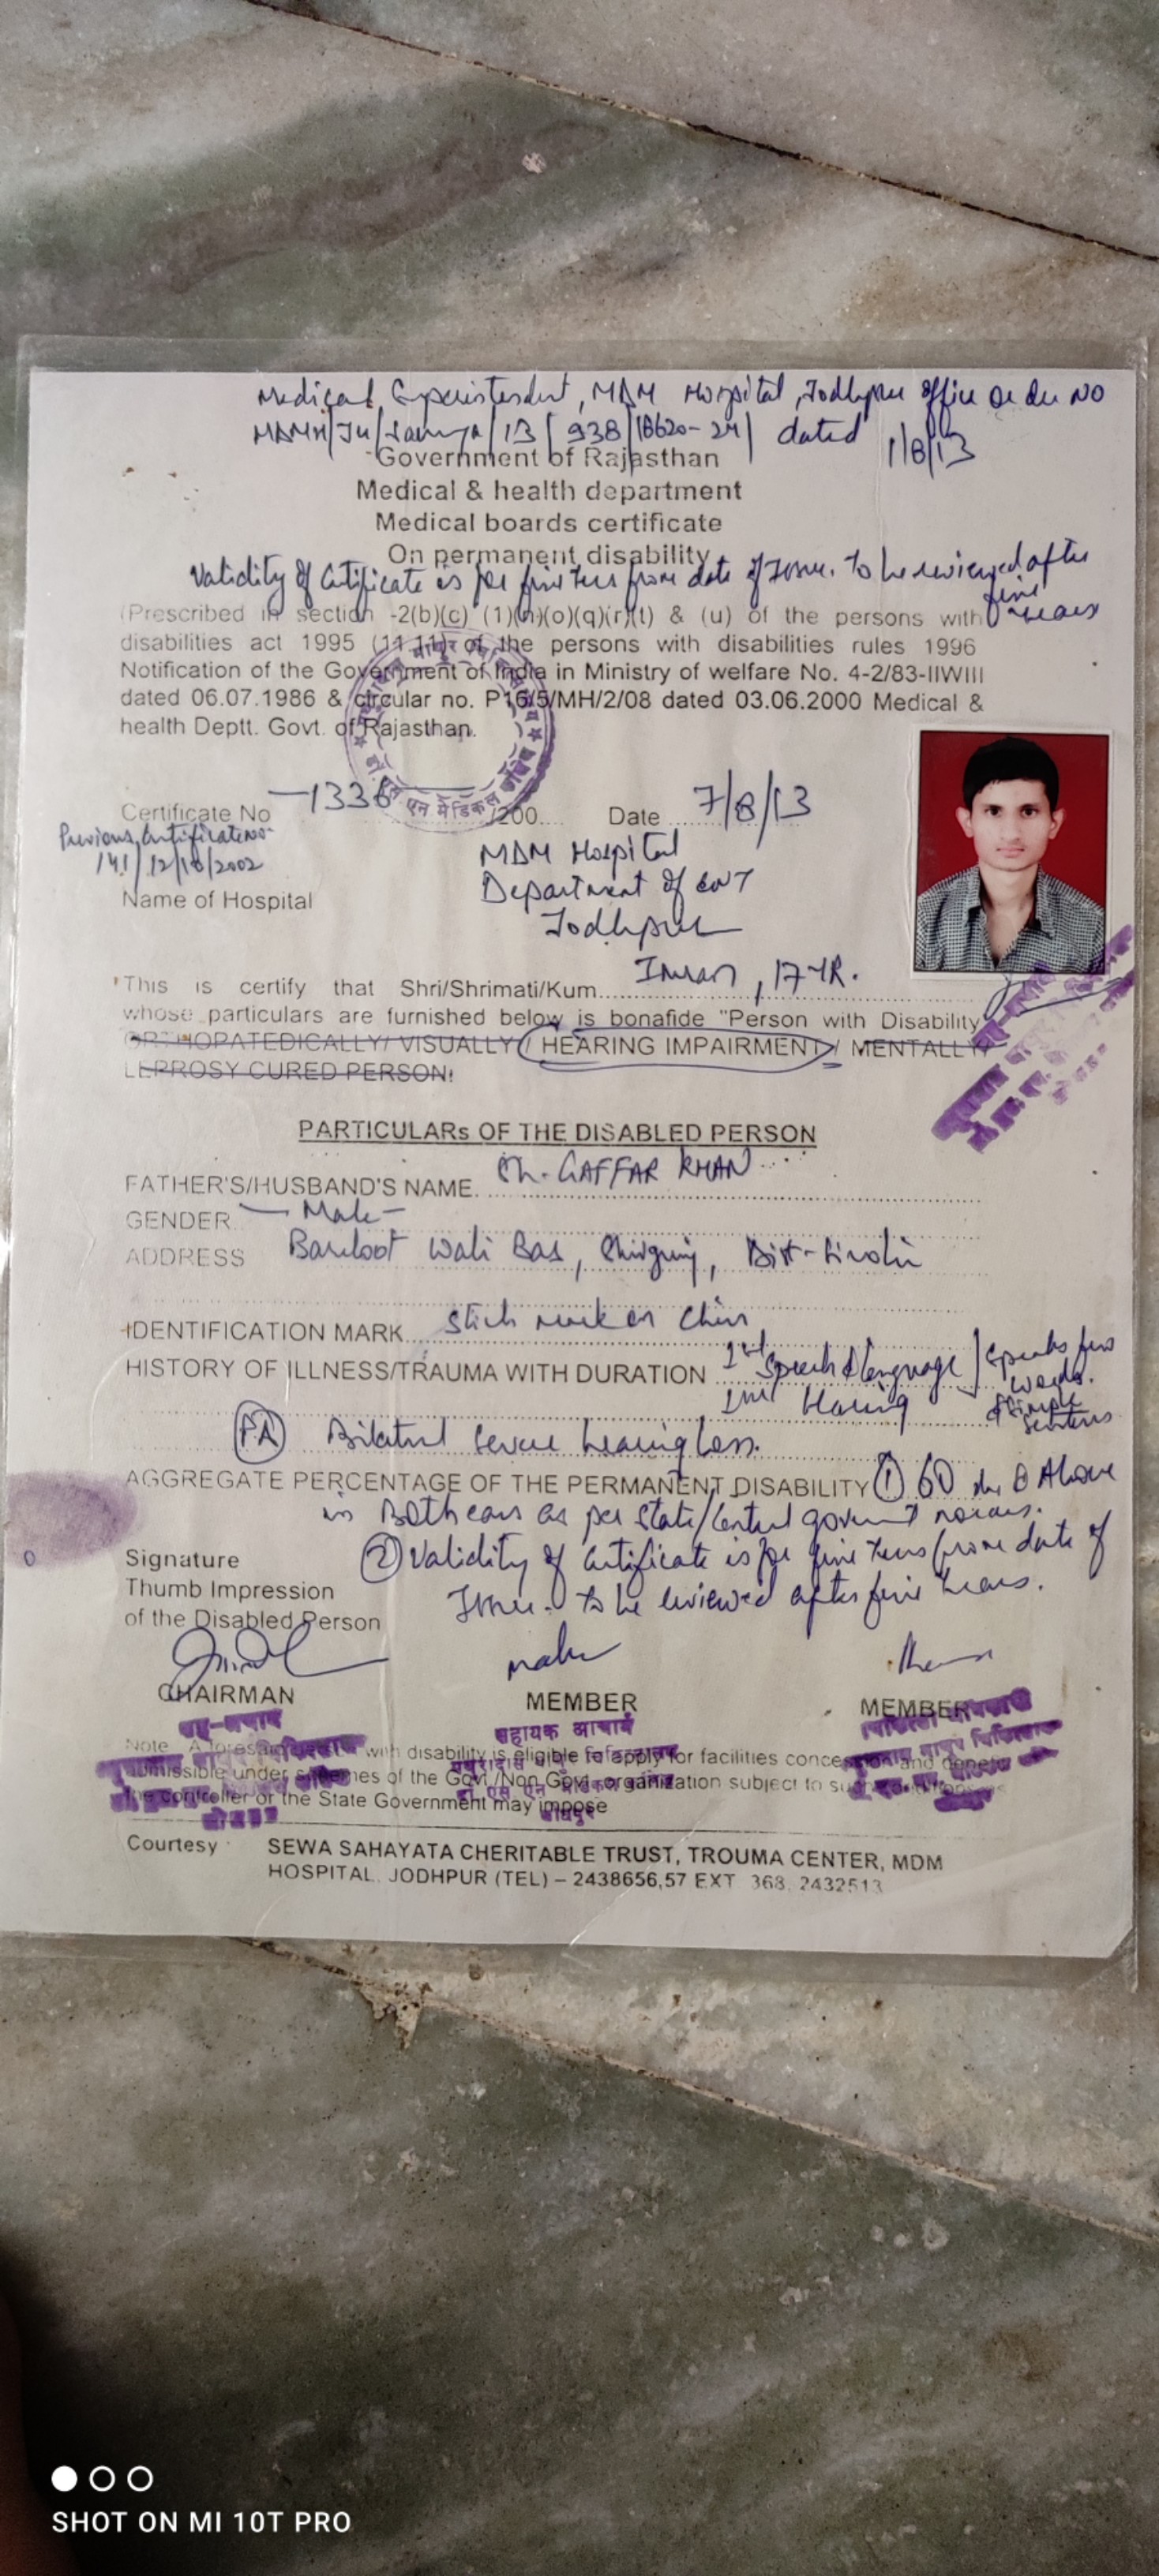 Medical Superintendent, MDM Hospital, Jodhpur office Order NO
MDMH/Ju/ /13/938/18620-24/ dated 1/8/13
Government of Rajasthan
Medical & health department
Medical boards certificate
On permanent disability
Validity of Certificate is for five Years from date of Issue. To be reviewed after five Years
(Prescribed in section -2(b)(c) (1)(n)(o)(q)(r)(t) & (u) of the persons with
disabilities act 1995 (11.11) of the persons with disabilities rules 1996
Notification of the Government of India in Ministry of welfare No. 4-2/83-IIWIII
dated 06.07.1986 & circular no. P16/5/MH/2/08 dated 03.06.2000 Medical &
health Deptt. Govt. of Rajasthan.
एन मेडिकल
Certificate No -1336 /200.... Date 7/8/13
Previous Certificate No-
141/12/10/2002
MDM Hospital
Name of Hospital Department of ENT
Jodhpur
This is certify that Shri/Shrimati/Kum. Imran, 17 YR.
whose particulars are furnished below is bonafide "Person with Disability
ORTHOPATEDICALLY/ VISUALLY / HEARING IMPAIRMENT / MENTALLY
LEPROSY CURED PERSON!
PARTICULARs OF THE DISABLED PERSON
FATHER'S/HUSBAND'S NAME. Sh. GAFFAR KHAN
GENDER - Male -
ADDRESS Barloot Wali Bas, Shivganj, Dist-Sirohi
IDENTIFICATION MARK. Stich mark on Chin
HISTORY OF ILLNESS/TRAUMA WITH DURATION Speech & language / Speaks few words.
Hearing & Simple Sentens
PA Bilateral severe hearing loss.
AGGREGATE PERCENTAGE OF THE PERMANENT DISABILITY ① 60 db & Above
in Both ears as per State/Central goverment norms.
② Validity of Certificate is for five Years from date of
Issue. To be reviewed after five Years.
Signature
Thumb Impression
of the Disabled Person
CHAIRMAN MEMBER MEMBER
सह-आचार्य सहायक आचार्य
Note A foresaid with disability is eligible to apply for facilities concession and
admissible under schemes of the Govt./Non Govt. organization subject to such conditions as
the controller or the State Government may impose
जोधपुर
Courtesy SEWA SAHAYATA CHERITABLE TRUST, TROUMA CENTER, MDM
HOSPITAL. JODHPUR (TEL) – 2438656,57 EXT 368, 2432513
SHOT ON MI 10T PRO